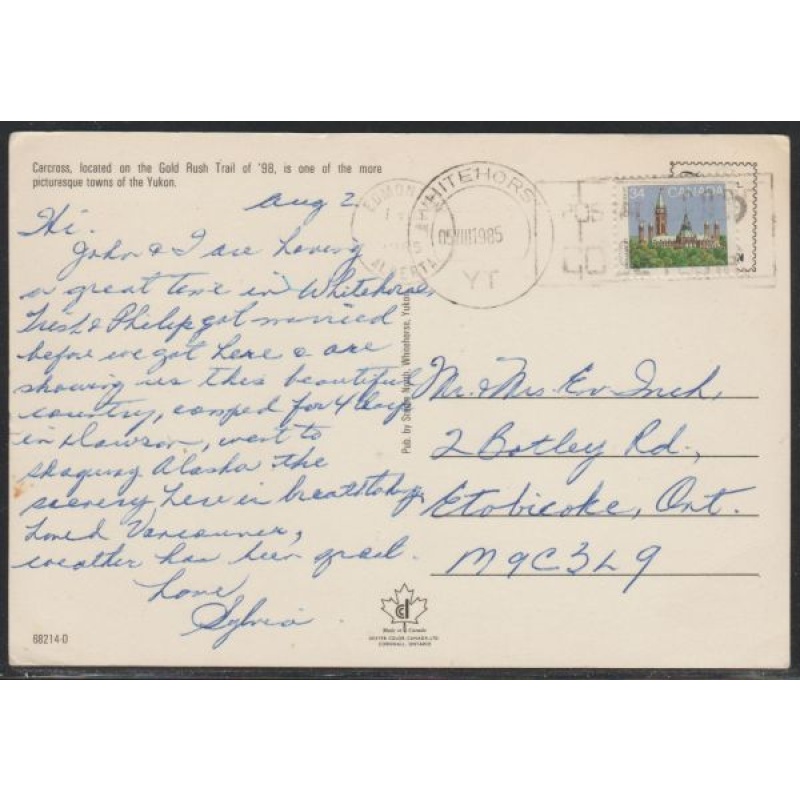 Carcross, located on the Gold Rush Trail of '98, is one of the more
picturesque towns of the Yukon.
Aug 2
Hi.
John & I are having
a great time in Whitehorse,
Trish & Philip got married
before we got here & are
showing us this beautiful
country, camped for 4 days
in Dawson, went to
Skagway Alaska the
scenery here is breathtaking
Loved Vancouver,
weather has been great.
Love
Sylvia
68214-D
EDMONTON
ALBERTA
WHITEHORSE
05 VIII 1985
YT
34 CANADA
Pub. by Studio North, Whitehorse, Yukon
Mr. & Mrs. Ev Inch,
2 Botley Rd.,
Etobicoke, Ont.
M9C3L9
Made in Canada
DEXTER COLOR CANADA LTD.
CORNWALL, ONTARIO